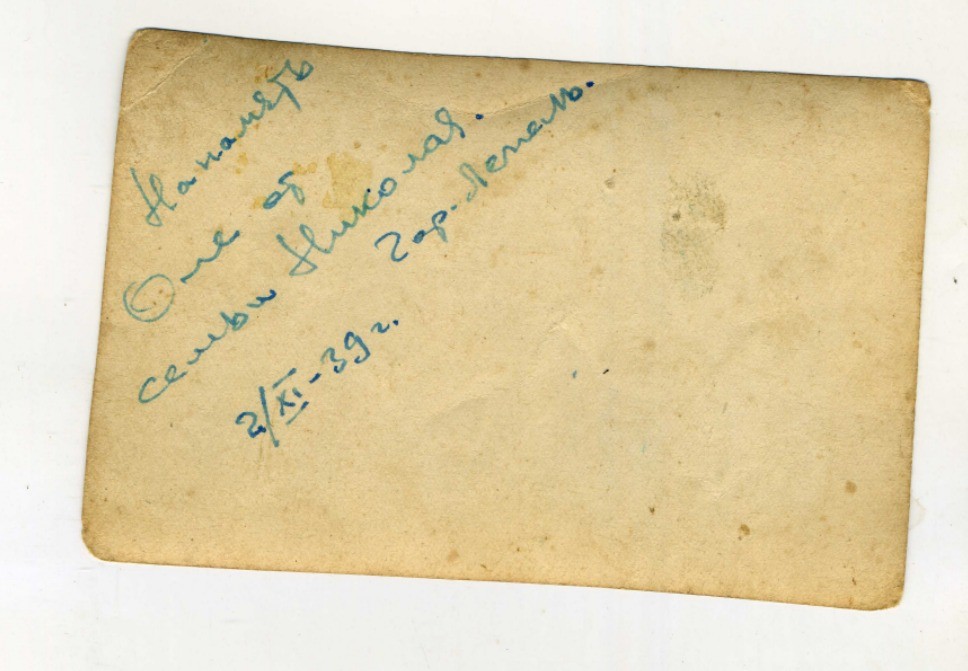 На память
Оле от
семьи Николая.
гор. Лепель.
2/XI-39 г.